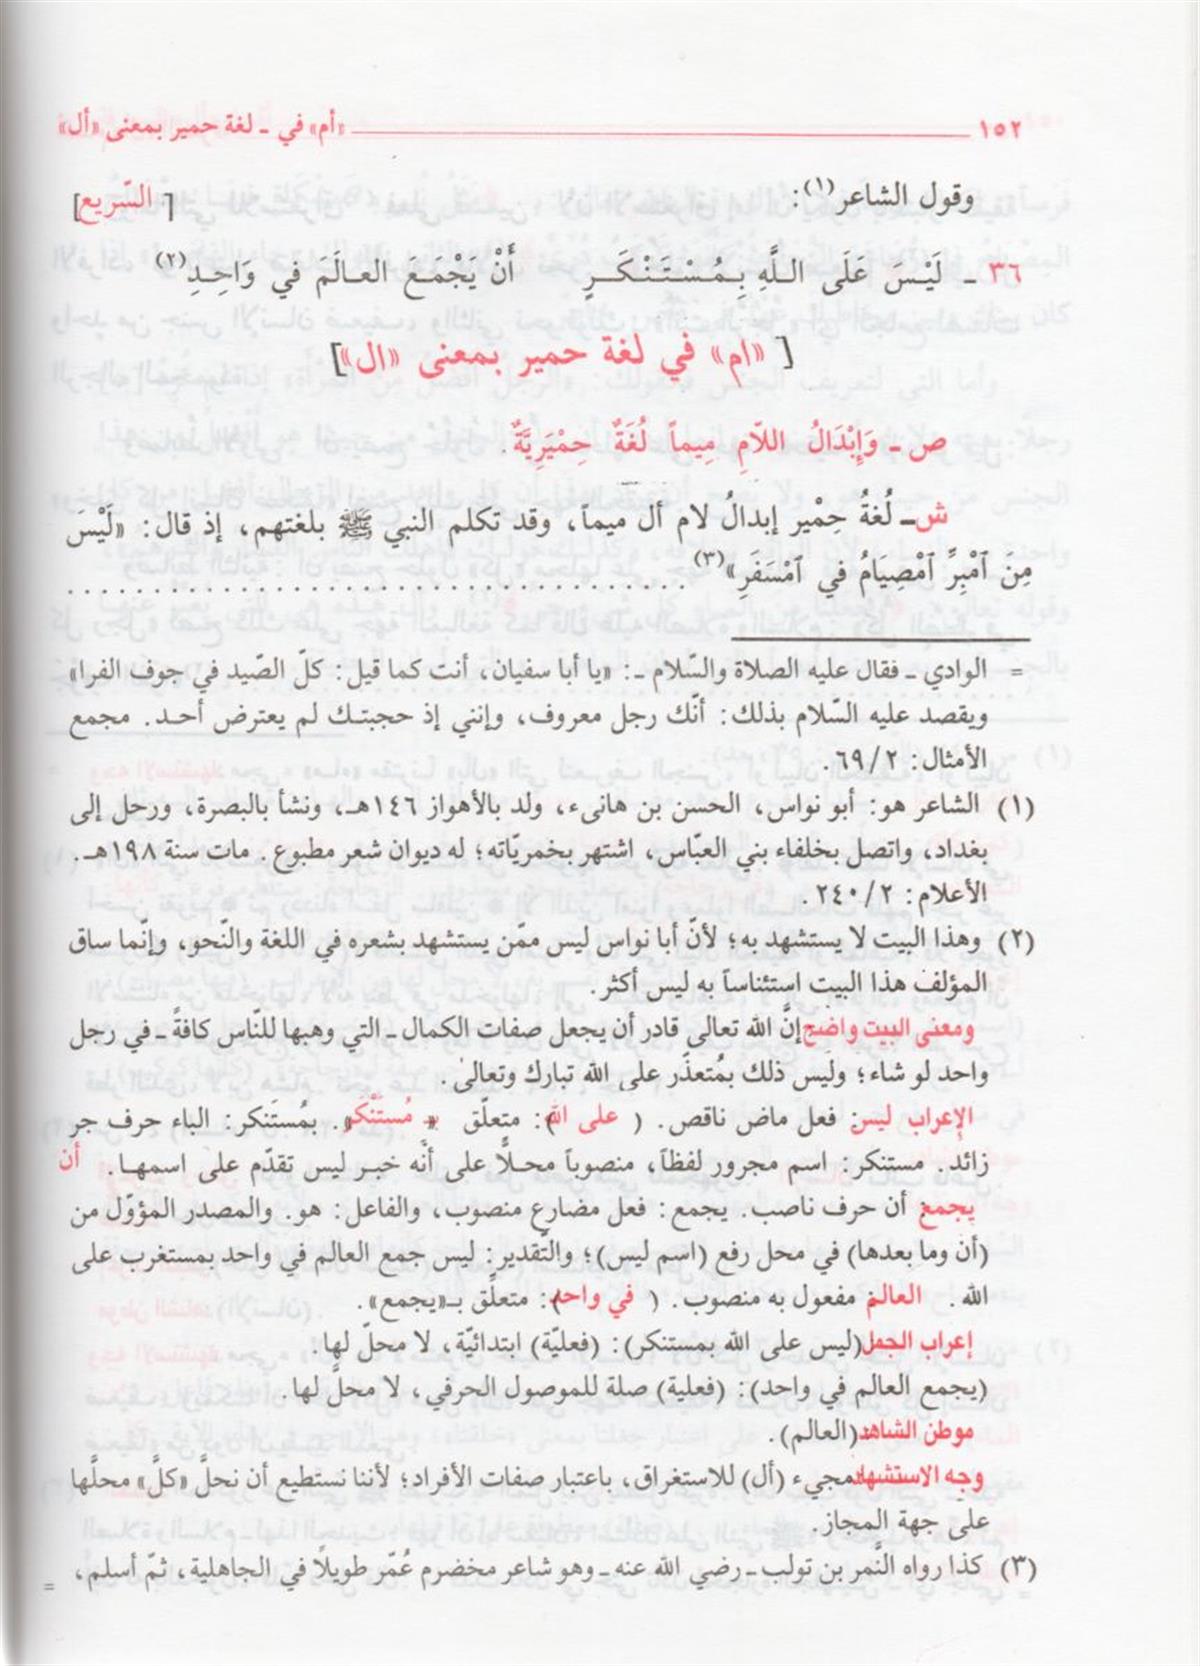 ١٥٢ «أم» في ـ لغة حمير بمعنى «أل»
وقول الشاعر(١): [السّريع]
٣٦ ـ لَيْسَ عَلَى اللَّهِ بِمُسْتَنْكَرٍ أَنْ يَجْمَعَ العالَمَ في وَاحِدِ(٢)
[«ام» في لغة حمير بمعنى «ال»]
ص ـ وَإِبْدَالُ اللاّمِ مِيماً لُغَةٌ حِمْيَرِيَّةٌ.
ش ـ لُغَةُ حِمْير إبدالُ لام أل ميماً، وقد تكلم النبي ﷺ بلغتهم، إذ قال: «لَيْسَ
مِنَ ٱمْبِرِّ ٱمْصِيَامُ في ٱمْسَفَرِ»(٣) . . . . . . . . . . . . . . . . . . . . . . . . . . . . . . . . . . .
= الوادي ـ فقال عليه الصلاة والسّلام ـ: «يا أبا سفيان، أنت كما قيل: كلّ الصّيد في جوف الفرا»
ويقصد عليه السّلام بذلك: أنّك رجل معروف، وإنني إذ حجبتك لم يعترض أحد. مجمع
الأمثال: ٦٩/٢.
(١) الشاعر هو: أبو نواس، الحسن بن هانىء، ولد بالأهواز ١٤٦هـ، ونشأ بالبصرة، ورحل إلى
بغداد، واتصل بخلفاء بني العبّاس، اشتهر بخمريّاته؛ له ديوان شعر مطبوع. مات سنة ١٩٨هـ.
الأعلام: ٢٤٠/٢.
(٢) وهذا البيت لا يستشهد به؛ لأنّ أبا نواس ليس ممّن يستشهد بشعره في اللغة والنّحو، وإنّما ساق
المؤلف هذا البيت استئناساً به ليس أكثر.
ومعنى البيت واضح: إنَّ الله تعالى قادر أن يجعل صفات الكمال ـ التي وهبها للنّاس كافةً ـ في رجل
واحد لو شاء؛ ولَيس ذلك بمُتعذّر على الله تبارك وتعالى.
الإعراب ليس: فعل ماض ناقص. (على الله): متعلّق بـ «مُسْتَنْكَر». بمُستَنكر: الباء حرف جر
زائد. مستنكر: اسم مجرور لفظاً، منصوباً محلاًّ على أنّه خبر ليس تقدّم على اسمها. أن
يجمع: أن حرف ناصب. يجمع: فعل مضارع منصوب، والفاعل: هو. والمصدر المؤوّل من
(أن وما بعدها) في محل رفع (اسم ليس)؛ والتّقدير: ليس جمع العالم في واحد بمستغرب على
الله. العالم: مفعول به منصوب. (في واحد): متعلّق بـ«يجمع».
إعراب الجمل: (ليس على الله بمستنكر): (فعليّة) ابتدائيّة، لا محلّ لها.
(يجمع العالم في واحد): (فعلية) صلة للموصول الحرفي، لا محلَّ لها.
موطن الشاهد: (العالم).
وجه الاستشهاد: مجيء (أل) للاستغراق، باعتبار صفات الأفراد؛ لأننا نستطيع أن نحلَّ «كلَّ» محلَّها
على جهة المجاز.
(٣) كذا رواه النَّمر بن تولب ـ رضي الله عنه ـ وهو شاعر مخضرم عُمّر طويلاً في الجاهلية، ثمّ أسلم، =